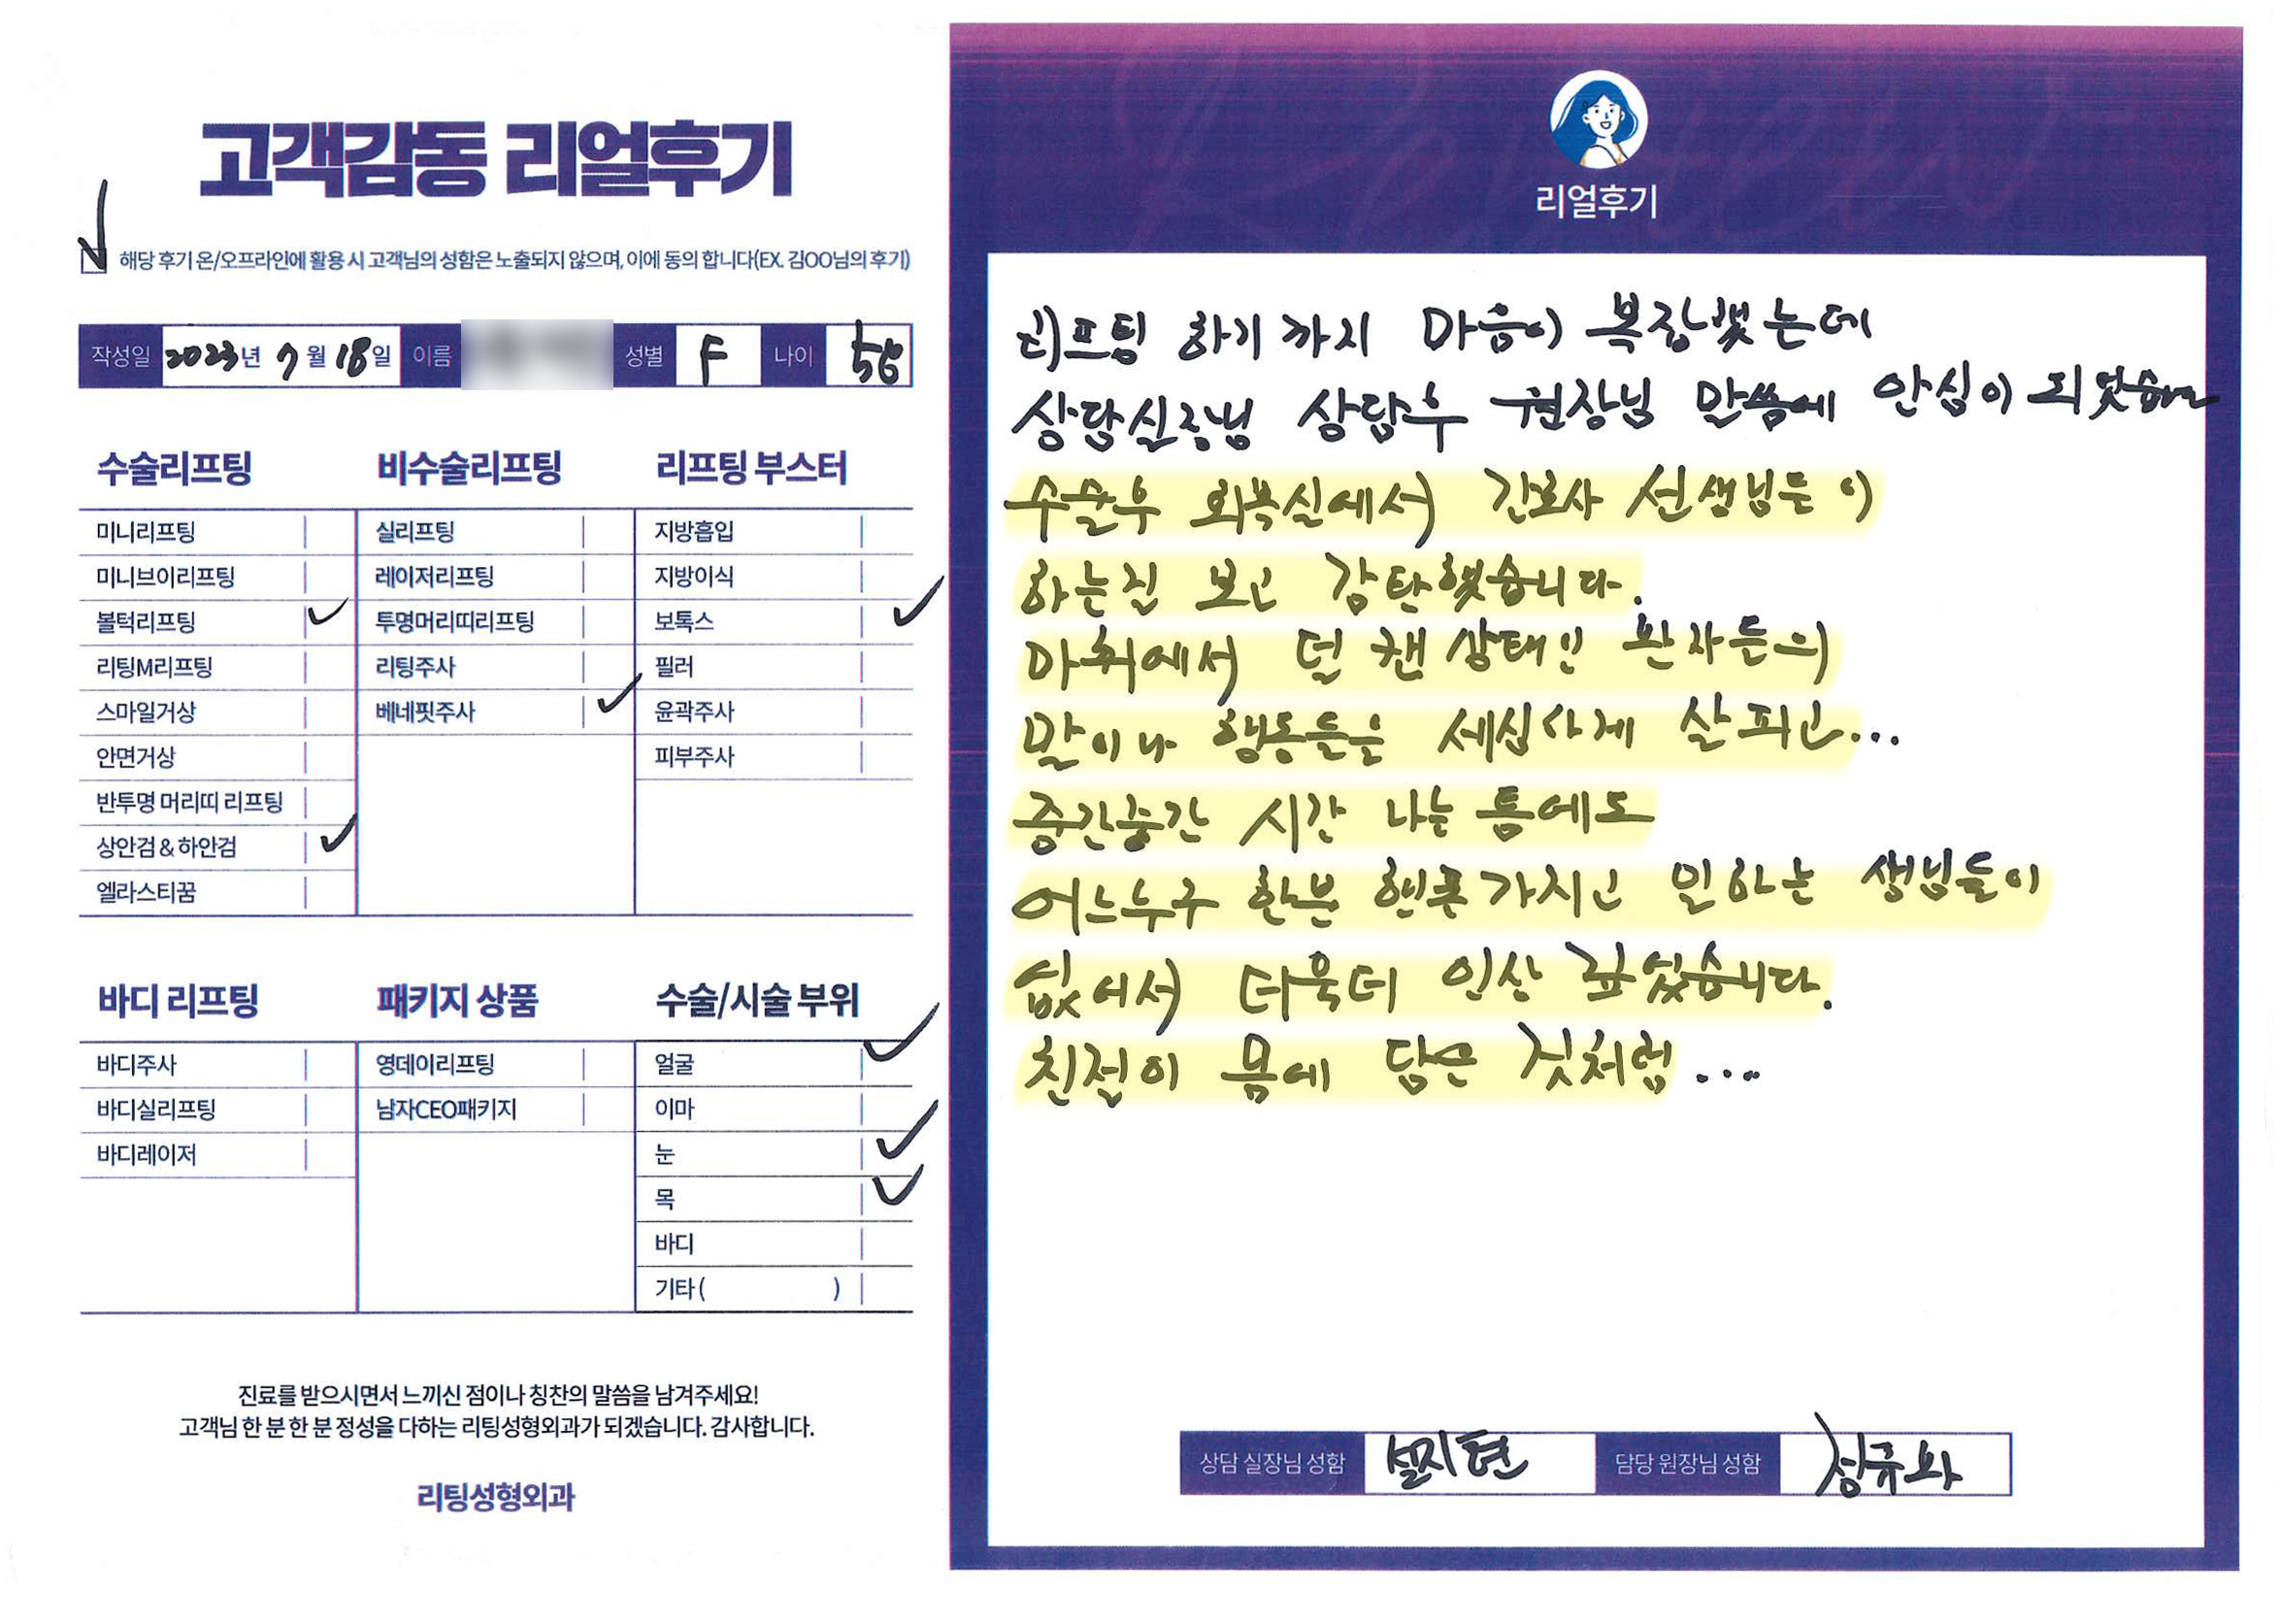 고객감동 리얼후기
해당 후기 온/오프라인에 활용 시 고객님의 성함은 노출되지 않으며, 이에 동의 합니다(EX. 김OO님의 후기)
작성일 2023년 7월 18일 이름 성별 F 나이 56
수술리프팅
미니리프팅
미니브이리프팅
볼턱리프팅
리팅M리프팅
스마일거상
안면거상
반투명 머리띠 리프팅
상안검 & 하안검
엘라스티꿈
비수술리프팅
실리프팅
레이저리프팅
투명머리띠리프팅
리팅주사
베네핏주사
리프팅 부스터
지방흡입
지방이식
보톡스
필러
윤곽주사
피부주사
바디 리프팅
바디주사
바디실리프팅
바디레이저
패키지 상품
영데이리프팅
남자CEO패키지
수술/시술 부위
얼굴
이마
눈
목
바디
기타 ( )
진료를 받으시면서 느끼신 점이나 칭찬의 말씀을 남겨주세요!
고객님 한 분 한 분 정성을 다하는 리팅성형외과가 되겠습니다. 감사합니다.
리팅성형외과
리얼후기
리프팅 하기 까지 마음이 복잡했는데
상담실장님 상담후 원장님 말씀에 안심이 되었습니다
수술후 회복실에서 간호사 선생님들이
하는걸 보고 감탄했습니다.
마취에서 덜 깬 상태인 환자들의
말이나 행동들을 세심하게 살피고...
중간중간 시간 나는 틈에도
어느누구 한분 핸폰가지고 일하는 샘님들이
없어서 더욱더 인상 깊었습니다.
친절이 몸에 담은 것처럼....
상담 실장님 성함 설지현 담당 원장님 성함 정규화